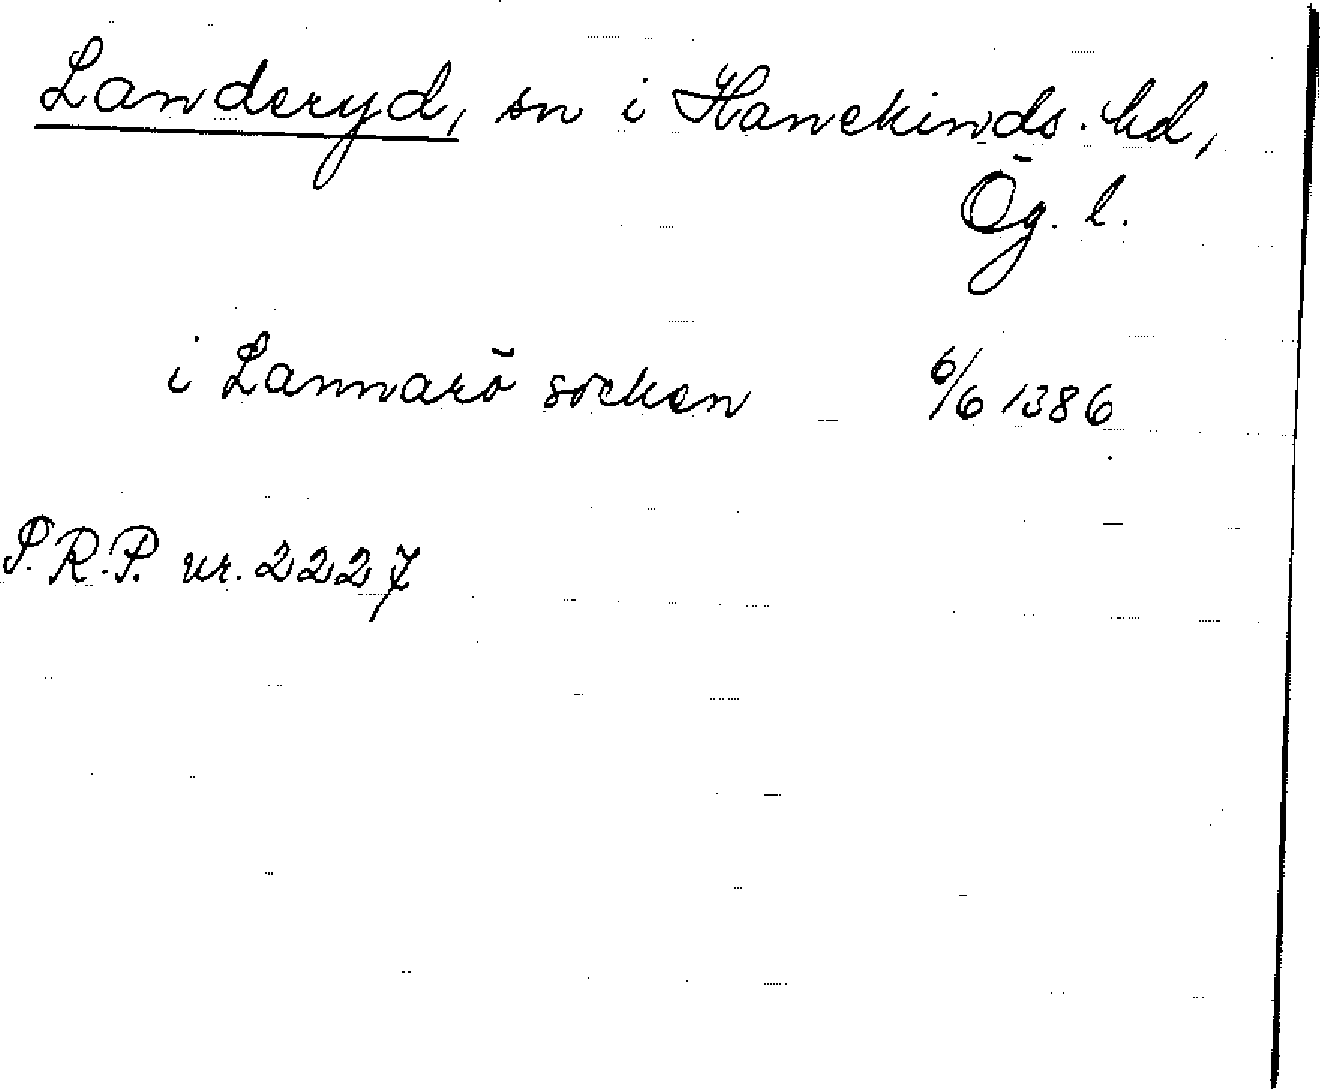 Landeryd, sn i Hanekinds hd,
Ög. l.
i Lannarö socken 6/6 1386
P.R.P. nr. 2227